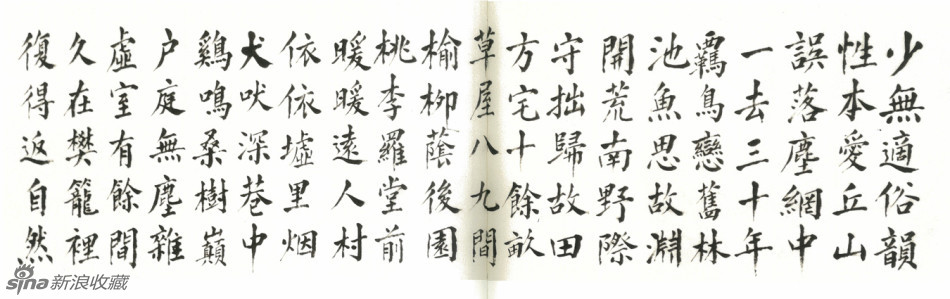 少無適俗韻
性本愛丘山
誤落塵網中
一去三十年
羈鳥戀舊林
池魚思故淵
開荒南野際
守拙歸故田
方宅十餘畝
草屋八九間
榆柳蔭後園
桃李羅堂前
暖暖遠人村
依依墟里烟
犬吠深巷中
鷄鳴桑樹巔
户庭無塵雜
虛室有餘間
久在樊籠裡
復得返自然
sina新浪收藏